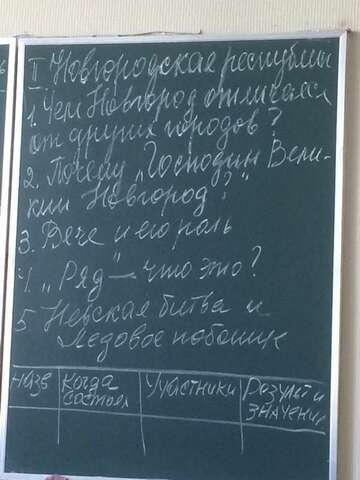 I Новгородская республика
1. Чем Новгород отличался
от других городов?
2. Почему „Господин Вели-
кий Новгород"?
3. Вече и его роль
4. „Ряд" – что это?
5 Невская битва и
Ледовое побоищ
Назв Когда состоял Участники Результ и значение